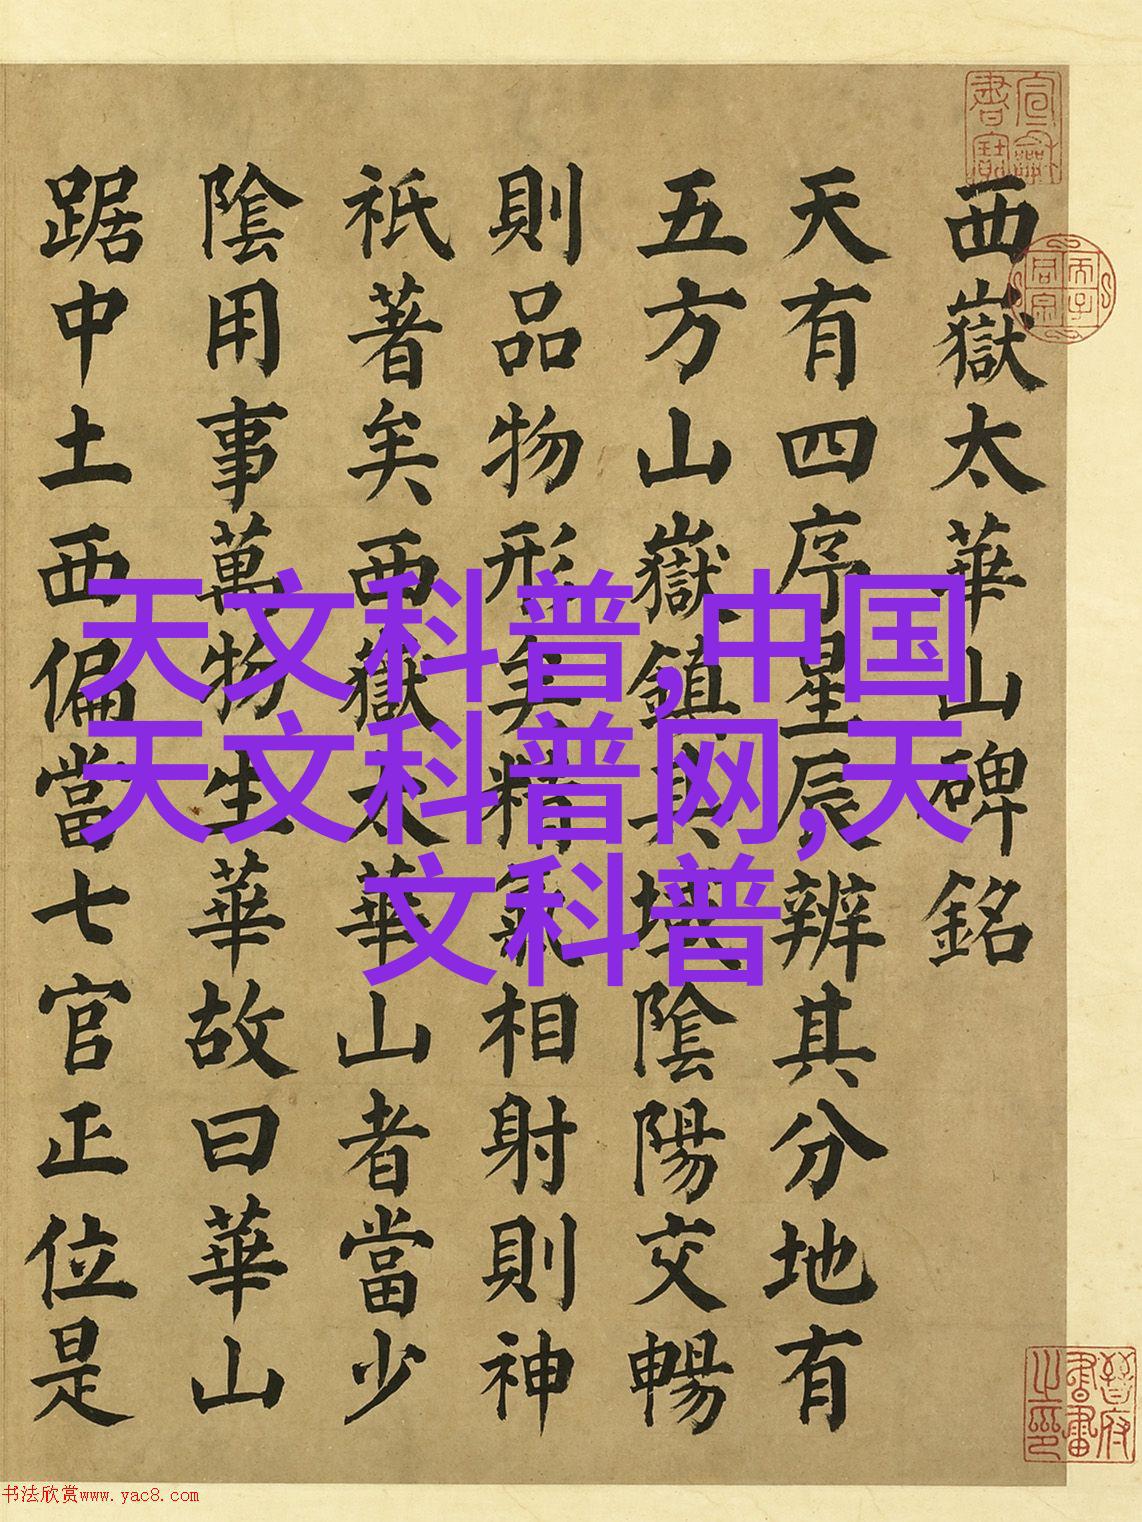 西嶽太華山碑銘
天有四序星辰辨其分地有
五方山嶽鎮其域陰陽交暢
則品物形矣精氣相射則神
祇著矣西嶽太華山者當少
陰用事萬物生華故曰華山
踞中土西偏當七官正位是
天文科普,中国
天文科普网,天
文科普
書法欣赏www.yac8.com